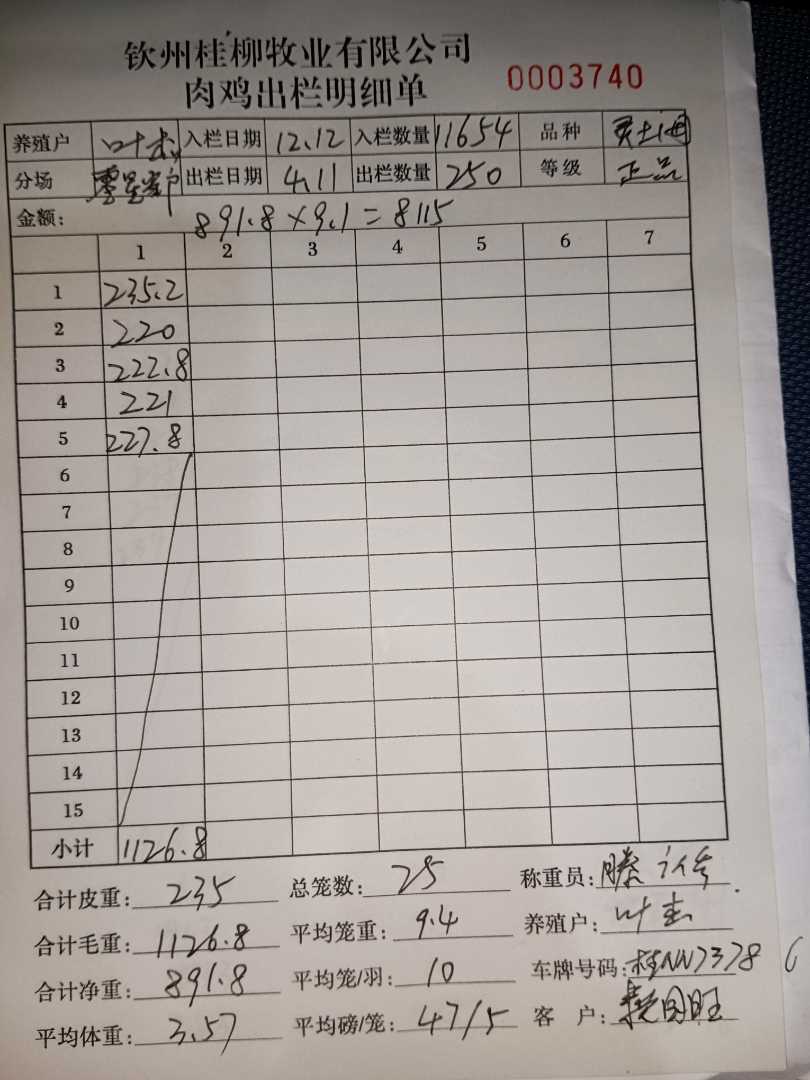 钦州桂柳牧业有限公司
肉鸡出栏明细单
0003740
养殖户 叶 入栏日期 12.12 入栏数量 11654 品种
分场 零星 出栏日期 4.11 出栏数量 250 等级 正品
金额: 891.8×9.1=8115
1 2 3 4 5 6 7
1 235.2
2 220
3 222.8
4 221
5 227.8
6
7
8
9
10
11
12
13
14
15
小计 1126.8
合计皮重: 235 总笼数: 25 称重员: 滕
合计毛重: 1126.8 平均笼重: 9.4 养殖户: 叶
合计净重: 891.8 平均笼/羽: 10 车牌号码: 桂NN7378
平均体重: 3.57 平均磅/笼: 47/5 客 户: